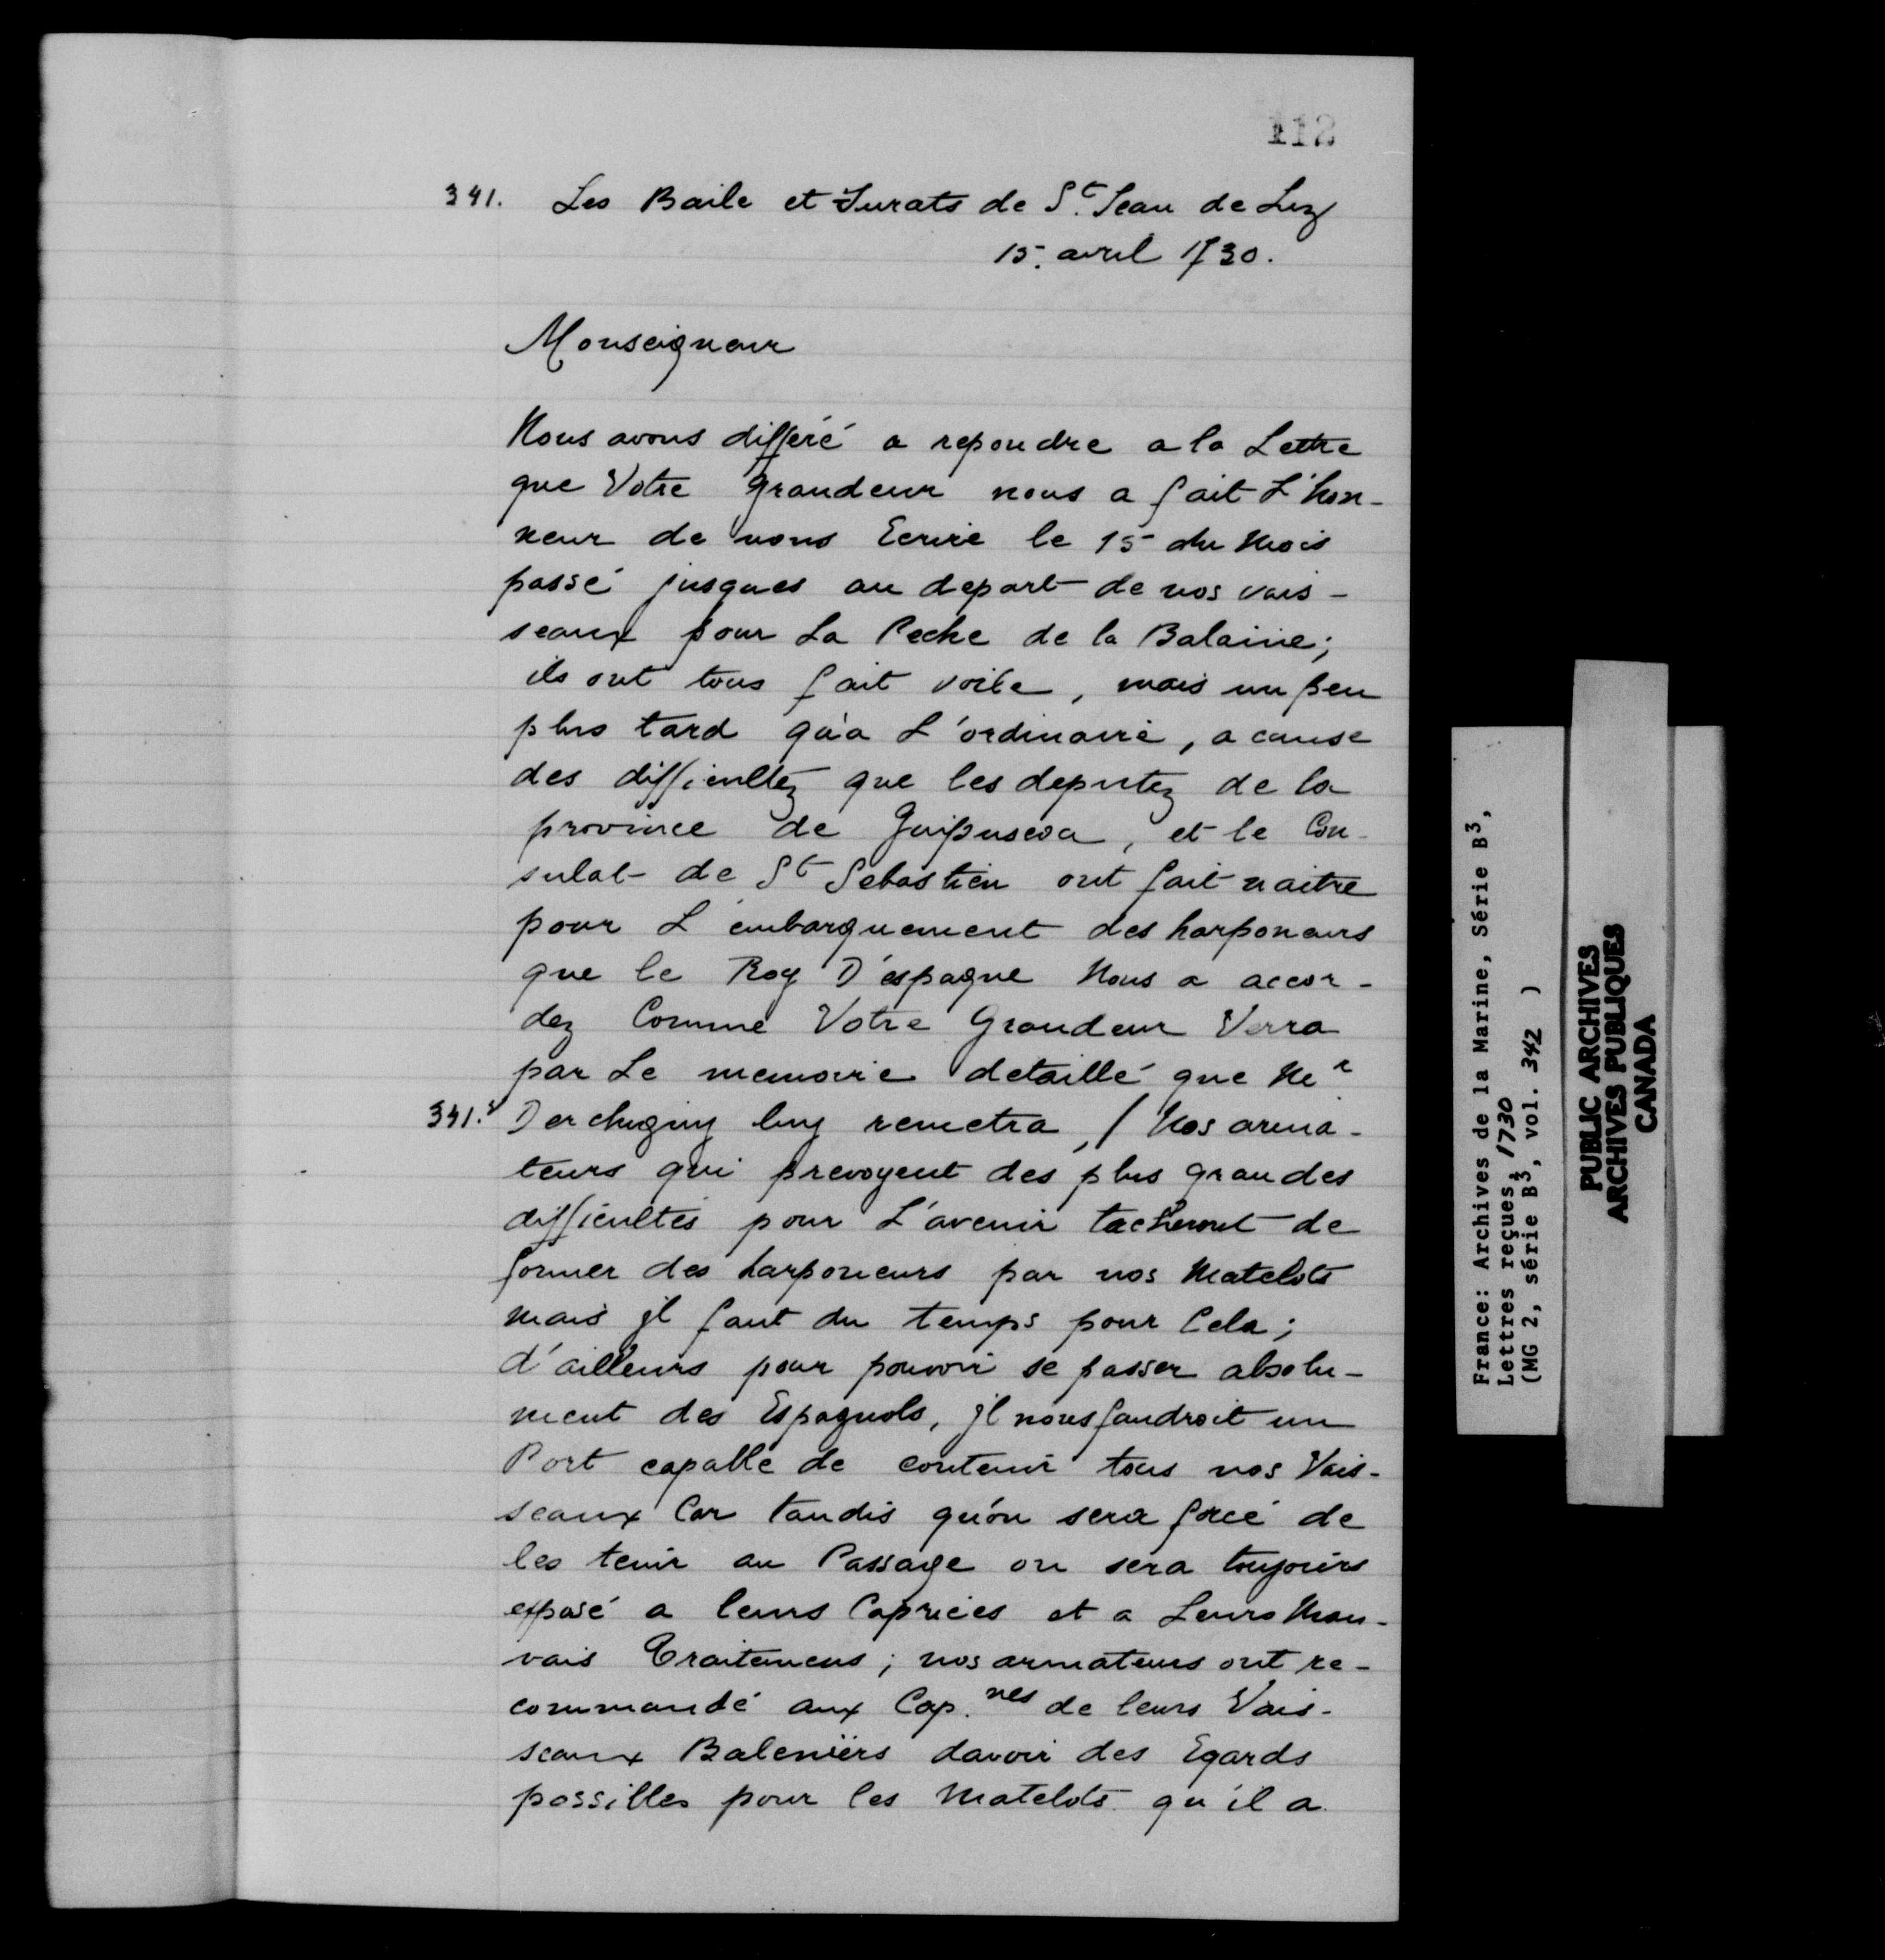 112
341. Les Baile et Jurats de St. Jean de Luz
15. avril 1730.
Monseigneur
Nous avons differé a repondre a la Lettre
que Votre grandeur nous a fait L'hon-
neur de nous Ecrire le 15 du Mois
passé jusques au depart de nos vais-
seaux pour La Peche de la Balaine;
ils ont tous fait voile, mais un peu
plus tard qu'a L'ordinaire, a cause
des difficultez que les deputez de la
province de Guipuscoa, et le Con-
sulat de St Sebastien ont fait naitre
pour L'embarquement des harponeurs
que le Roy D'espagne Nous a accor-
dez Comme Votre Grandeur Verra
par Le memoire detaillé que Mr
341.v Derchigny luy remetra, / Nos arma-
teurs qui prevoyent des plus grandes
difficultés pour L'avenir tacheront de
former des harponeurs par nos Matelots
mais jl faut du temps pour Cela;
d'ailleurs pour pouvoir se passer absolu-
ment des Espagnols, jl nous faudroit un
Port capable de contenir tous nos Vais-
seaux Car tandis qu'on sera forcé de
les tenir au Passage on sera toujours
exposé a leurs Caprices et a Leurs Mau-
vais Traitemens; nos armateurs ont re-
commandé aux Cap.nes de leurs Vais-
seaux Baleniers davoir des Egards
possibles pour les Matelots qu'il a
France: Archives de la Marine, Série B3,
Lettres reçues, 1730
(MG 2, série B3, vol. 342 )
PUBLIC ARCHIVES
ARCHIVES PUBLIQUES
CANADA